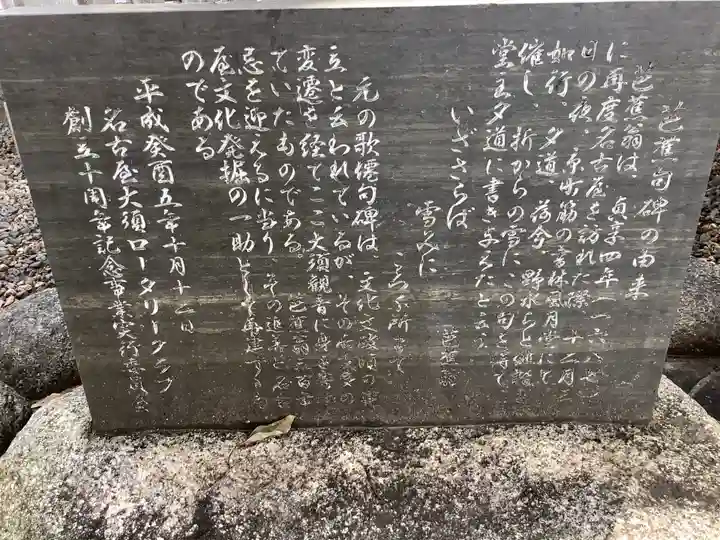 芭蕉句碑の由来
芭蕉翁は、貞享四年(一六八七)
に再度名古屋を訪れた際、十二月三
日の夜、本町筋の書林風月堂にて
如行、夕道、荷兮、野水らと俳諧を
催し、折からの雪にこの句を得て
堂主夕道に書き与えたと云う
いざさらば
雪見に
ころぶ所まで
芭蕉翁
元の歌僊句碑は、文化文政頃の
立と云われているが、その後
変遷を経てここ大須観音に
ていたものである。芭蕉翁三百
忌を迎えるに当り、その追善と名古
屋文化発掘の一助として再建するも
のである
平成癸酉五年十月十二日
名古屋大須ロータリークラブ
創立十周年記念事業実行委員会